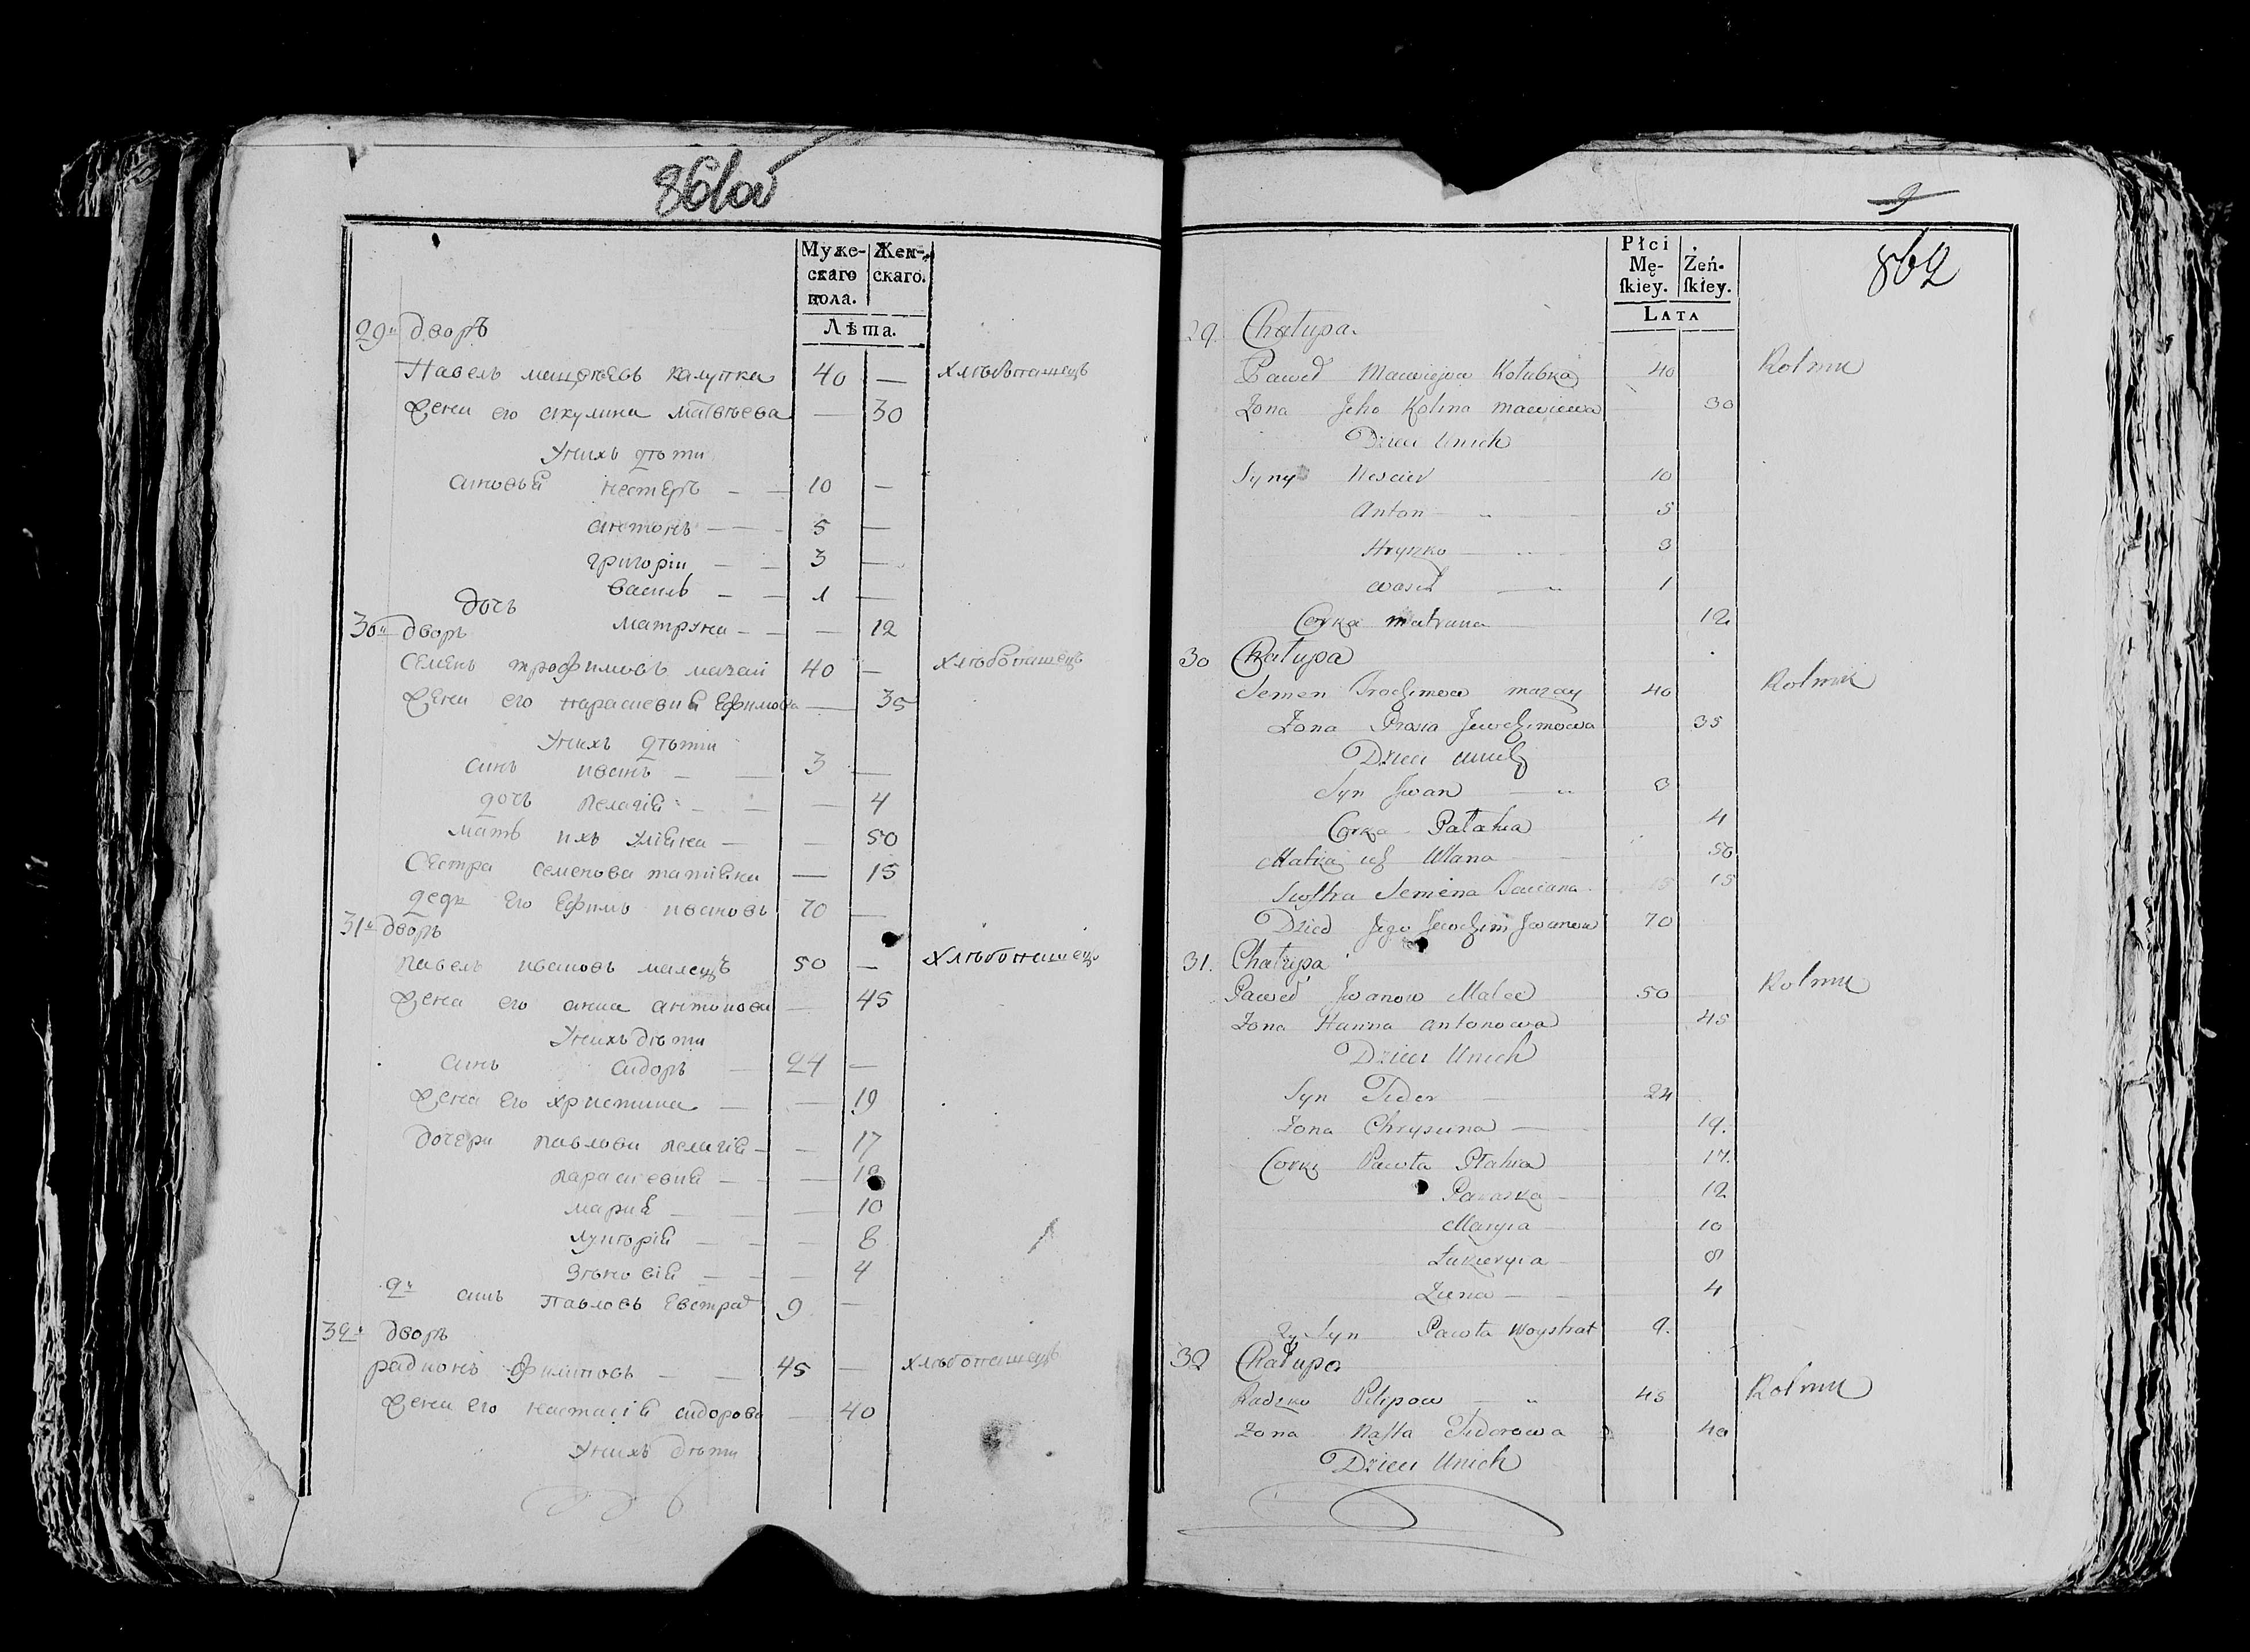 861об
Муже-
скаго
пола.
Жен-
скаго.
Лѣта.
29й дворъ
Павелъ мацѣевъ калупка 40 — хлѣбопашецъ
Жена его акулина матвѣева — 30
У нихъ дѣти
синовья нестеръ — — 10 —
антонъ — — 5 —
григорiи — — 3 —
василь — — 1 —
дочь
матруна — — — 12
30й дворъ
Семенъ трофимовъ мазаи 40 — хлѣбопашецъ
Жена его парасковия Ефимова — 35
У нихъ дѣти
синъ иванъ — — 3 —
дочь пелагiя — — — 4
мать ихъ улiяна — — 50
Сестра семенова татияна — 15
деди Его Ефимъ ивановъ 70 —
31й дворъ
павелъ ивановъ малецъ 50 — Хлѣбопашецъ
Жена его анна антонова — 45
У нихъ дѣти
синъ сидоръ — 24 —
Жена Его христина — — 19
дочери павлови пелагiя — — 17
парасковия — — 12
мария — — 10
лукгорiя — — — 8
зѣновiя — — — 4
2й синъ Павловъ Евстрат 9 —
32й дворъ
радионъ филиповъ — — 45 — хлѣбопашецъ
Жена Его настасiя сидорова — 40
У нихъ дѣти
9
862
Płci
Mę-
ſkiey.
Żeń-
ſkiey.
LATA
29. Chałupa.
Paweł Maciejow Kołubka 40 Rolnik
Zona Jeho Kolina maciewa 30
Dzieci Unich
Syny Nescier 10
Anton „ 5
Hryszko „ 3
wasil „ 1
Corka matruna 12
30 Chałupa
Semen Trochimow mazay 40 Rolnik
Zona Prosia Jewchimowa 35
Dzieci unich
Syn Jwan „ 3
Corka Pałahia 4
Matka ich Ulana 50
Siostra Semena Taciana 15
Dzied Jego Jewchim Jwanow 70
31. Chałupa
Paweł Jwanow Malec 50 Rolnik
Zona Hanna antonowa 45
Dzieci Unich
Syn Sidor 24
Zona Chrysuna 19.
Corki Pawła Płahia 17.
Paraska 12
Maryia 10
Łukieryia 8
Ziena 4
2y Syn Pawła Woystrat 9.
32 Chałupa
Radzko Pilipow „ 45 Rolnik
Zona Nasta Sidorowa 40
Dzieci Unich